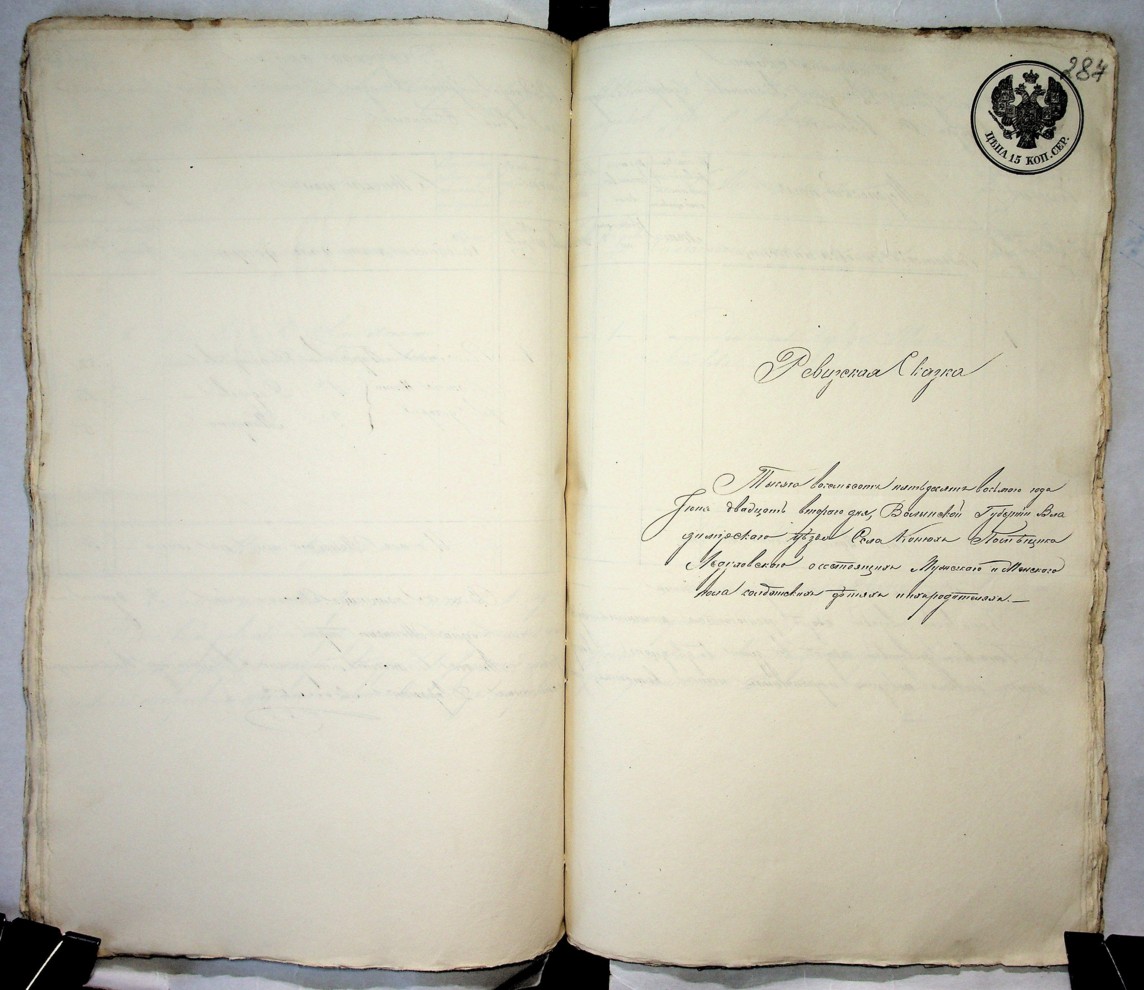 284
ЦѢНА 15 КОП. СЕР.
Ревизская Сказка
Тысяча восемьсотъ пятьдесятъ восьмого года
Іюня двадцать втораго дня, Волынской Губерніи Вла
димірскаго уѣзда Села Конюхъ Помѣщика
о состоящихъ Мужскаго и Женскаго
пола солдатскихъ дѣтяхъ и ихъ родителяхъ.—